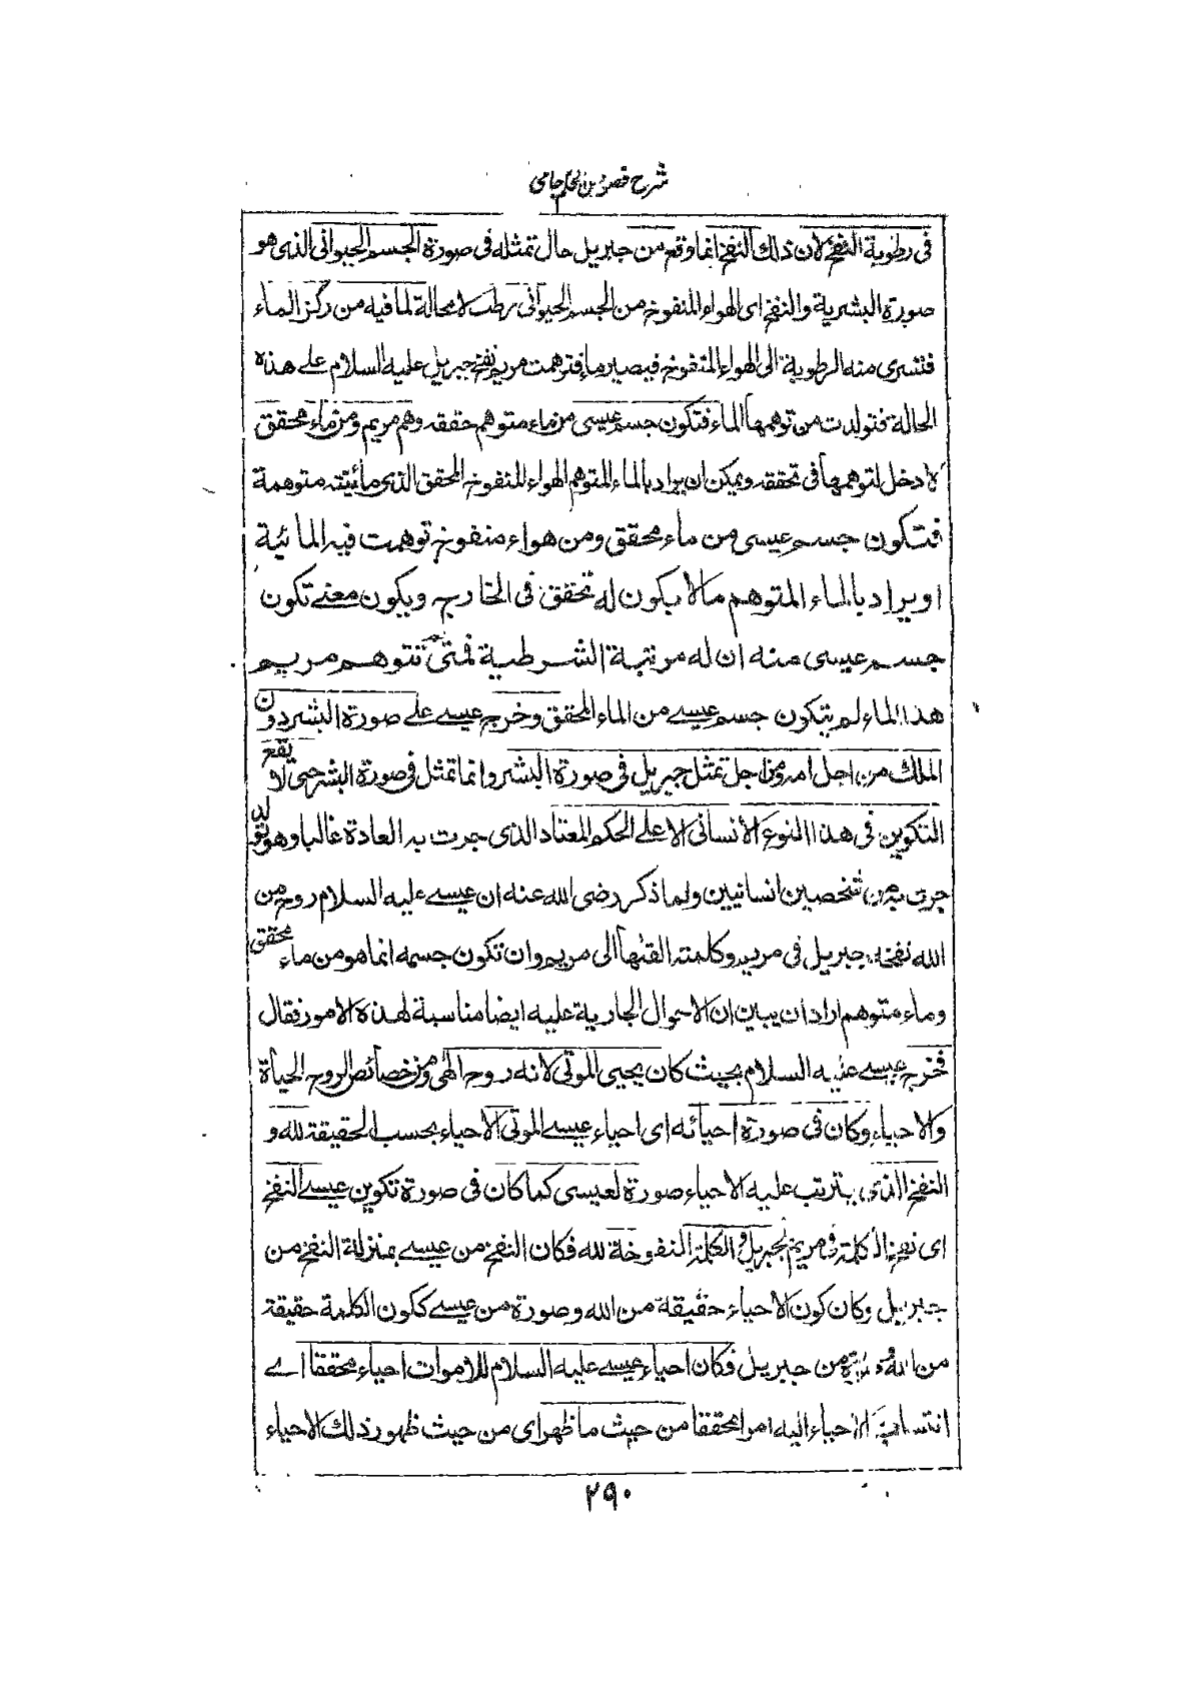 شرح فصوص الحكم جامى
فى رطوبة النفخ لان ذلك النفخ انما وقع من جبريل حال تمثله فى صورة الجسم الحيوانى الذى هو
صورة البشرية والنفخ اى الهواء المنفوخ من الجسم الحيوانى رطب لا محالة لما فيه من ركز الماء
فتسرى منه الرطوبة الى الهواء المنفوخ فيصير ماء فتوهمت مريم نفخ جبريل عليه السلام على هذه
الحالة فتولدت من توهمها الماء فتكون جسم عيسى من ماء متوهم حققه وهم مريم ومن ماء محقق
لا دخل لتوهمها فى تحققه ويمكن ان يراد بالماء المتوهم الهواء المنفوخ المحقق الذى مائيته متوهمة
فتكون جسم عيسى من ماء محقق ومن هواء منفوخ توهمت فيه المائية
او يراد بالماء المتوهم مالا يكون له تحقق فى الخارج ويكون معنے تكون
جسم عيسى منه ان له مرتبة الشرطية فمتى لم تتوهم مريم
هذا الماء لم يتكون جسم عيسے من الماء المحقق وخرج عيسے علے صورة البشر دون
الملك من اجل امه ومن اجل تمثل جبريل فى صورة البشر وانما تمثل فى صورة البشر حتى لا يقع
التكوين فى هذا النوع الانسانى الا على الحكم المعتاد الذى جرت به العادة غالبا وهو تولد
من شخصين انسانيين ولما ذكر رضى الله عنه ان عيسے عليه السلام روح من
الله نفخه جبريل فى مريم وكلمته القٰها الى مريم وان تكون جسمه انما هو من ماء محقق
وماء متوهم اراد ان يبين ان الاحوال الجارية عليه ايضا مناسبة لهذه الامور فقال
فخرج عيسے عليه السلام بحيث كان يحيى الموتى لانه روح الهى ومن خصائص الروح الحياة
والاحياء وكان فى صورة احيائه اى احياء عيسے الموتى الاحياء بحسب الحقيقة لله و
النفخ الذى يترتب عليه الاحياء صورة لعيسى كما كان فى صورة تكوين عيسے النفخ
اى نفخ الكلمة فى مريم لجبريل والكلمة المنفوخة لله فكان النفخ من عيسے بمنزلة النفخ من
جبريل وكان كون الاحياء حقيقة من الله وصورة من عيسے ككون الكلمة حقيقة
من الله من جبريل فكان احياء عيسے عليه السلام للاموات احياء محققا اے
انتساب الاحياء اليه امرا محققا من حيث ما ظهر اى من حيث ظهور ذلك الاحياء
٢٩٠